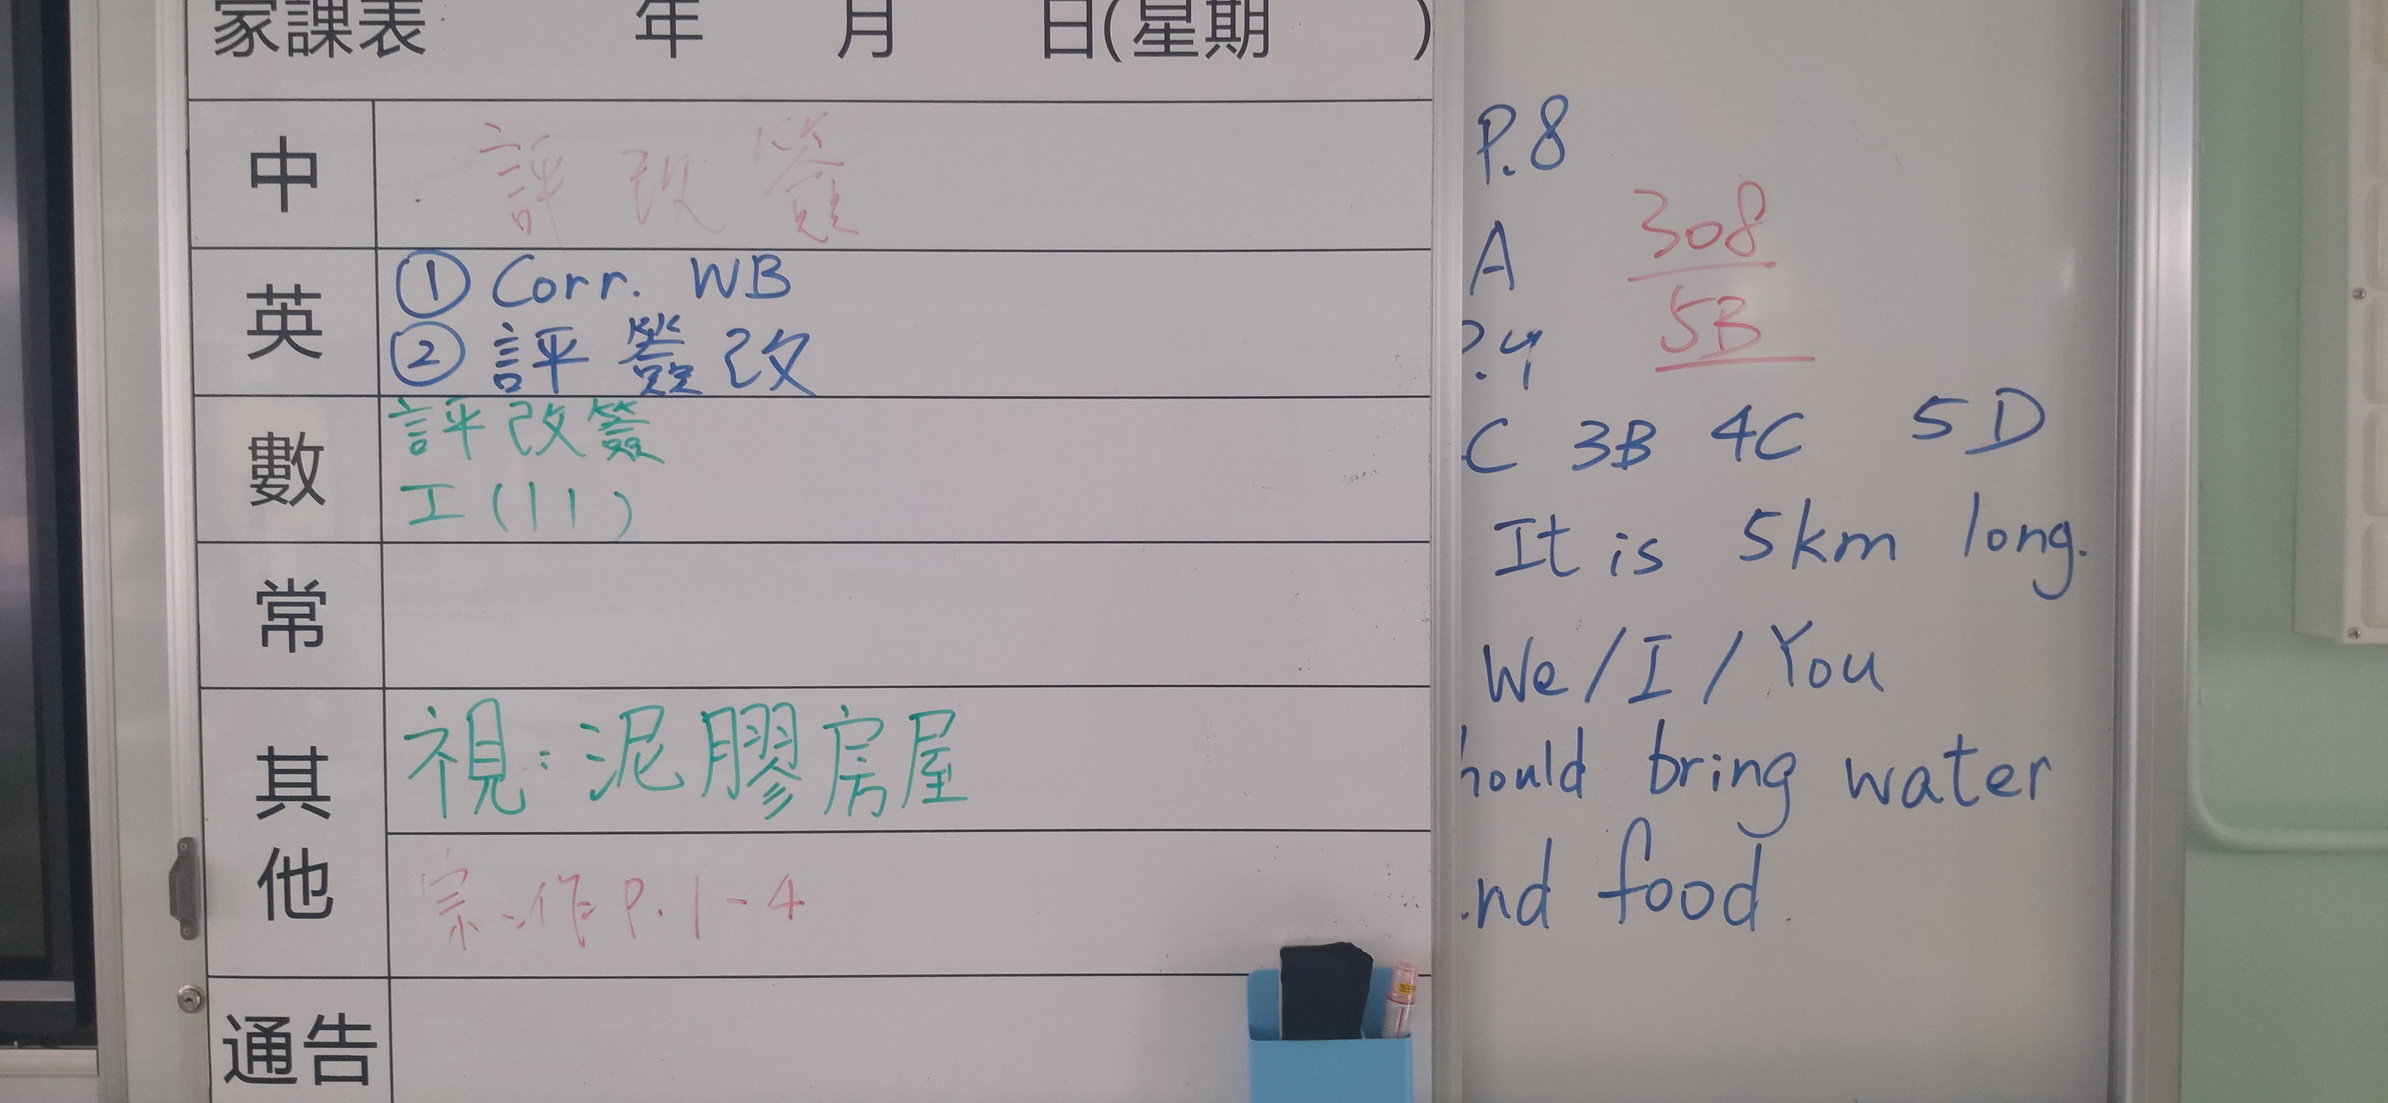 家課表 年 月 日(星期 )
中 評改簽
英 ① Corr. WB
② 評簽改
數 評改簽
工(11)
常
其他 視:泥膠房屋
宗:作 P.1-4
通告
P.8
308
A
5B
.4
C 3B 4C 5D
It is 5km long.
We/I/You
hould bring water
nd food.